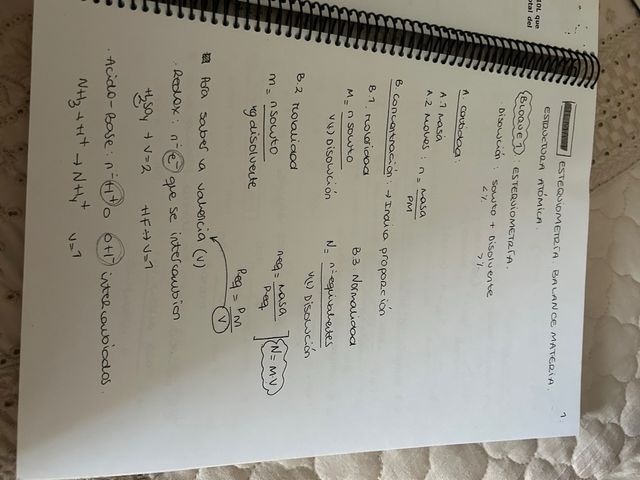 1.
ESTEQUIOMETRÍA BALANCE MATERIA.
ESTRUCTURA ATÓMICA.
(BLOQUE 1) ESTEQUIOMETRÍA.
Disolución: soluto + Disolvente
<%. >%.
A. Cantidad:
A.1 Masa
A.2 Moles: n = masa / PM
B. Concentración: → Indica proporción
B.1. Molaridad
M = n soluto / V(l) Disolución
B.2 molalidad
m = n soluto / kg disolvente
B.3 Normalidad
N = nº equivalentes / V(l) Disolución
neq = masa / Peq
N = M·V
Peq = PM / V
Para saber la valencia (V)
. Redox: nº e⁻ que se intercambian
H₂SO₄ → V=2 HF → V=1
. Ácido-Base: nº H⁺ o OH⁻ intercambiados.
NH₃ + H⁺ → NH₄⁺ V=1
SOL que
tal del